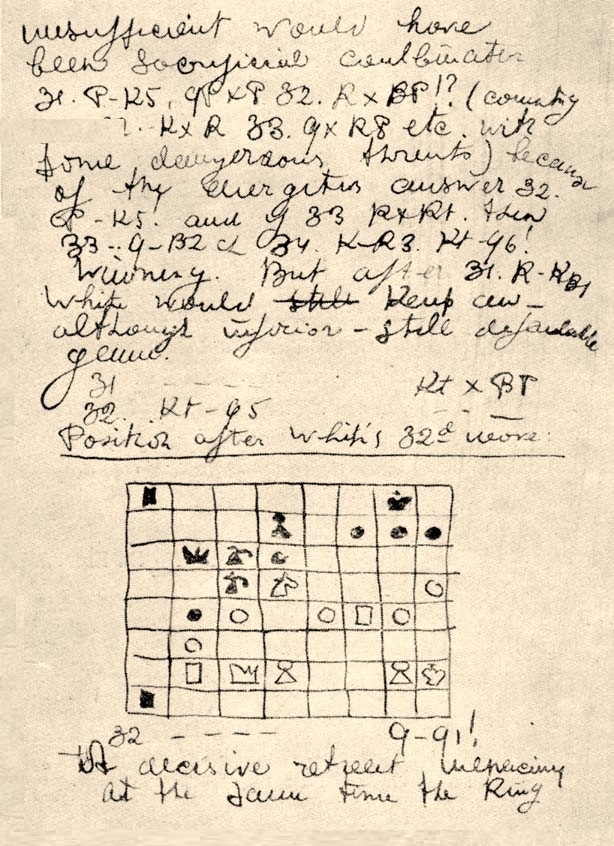 unsufficient would have
been sacrificial combination
31. P-K5, QP x P 32. R x BP!? (counting
K x R 33. Q x RP etc. with
some dangerous threats) because
of the energetic answer 32.
P-K5! and if 33 R x Kt. then
33 .. Q-B2 ch 34. K-R3. Kt-Q6!
Winning. But after 31. R-KB1
White would still keep an -
although inferior - still defendable
game.
31 - - - - - Kt x BP
32. Kt-Q5 - - -
Position after White's 32d move:
32 - - - - Q-Q1!
A decisive retreat menacing
at the same time the King